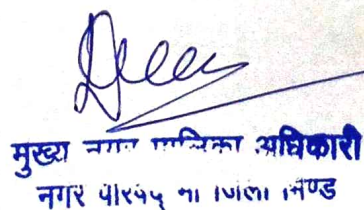 मुख्य नगर पालिका अधिकारी
नगर परिषद जिला भिण्ड